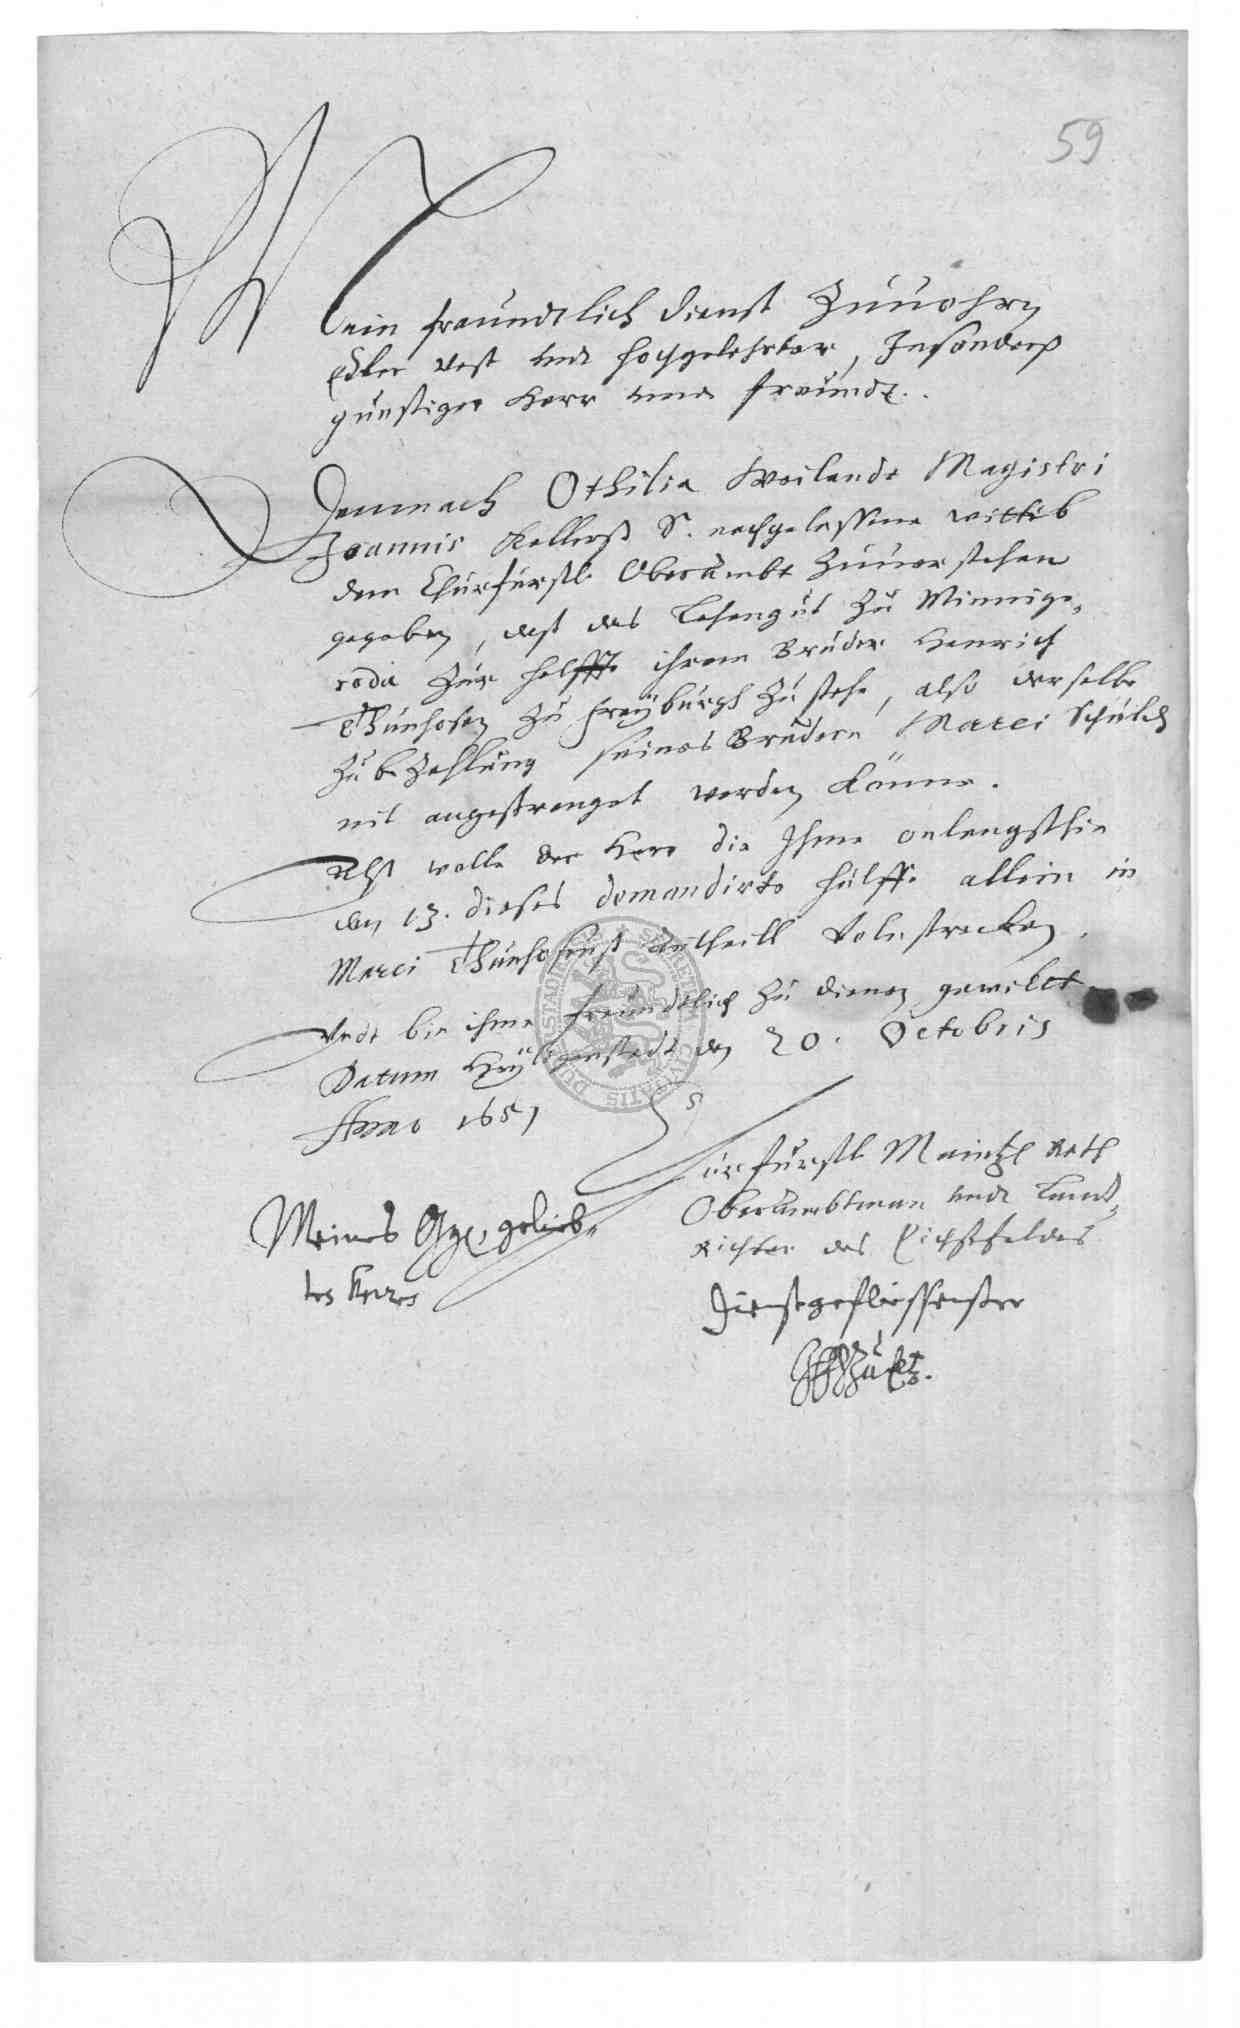 59
Mein freundtlich dienst Zuuohrn
Edler vest undt hochgelehrter, Insonderß
günstiger Herr undt freündt.
Demnach Othilia Weilandt Magistri
Joannis Kellerß S. nachgelassene wittib
dem Churfürstl. Oberambt Zuuerstehen
gegeben, dast das Lehengut Zu Minnige-
roda Zur helffte ihrem Bruder Henrich
Thünhosen Zu Freyburgh Zustehe, also derselbe
Zu beZahlung seines Brudern Marci Schuldt
nit angestrenget werden könne.
Alst wolle der Herr die Ihme onlengsthin
den 13. dieses demandirte hülffe allein in
Marci Thünhosenst antheill Volnstrecken,
Undt bin ihme freündtlich Zu dienen gewilt
Datum Heyligenstadt den 20. Octobris
Anno 1651
Churfürstl. Maintz. Rath
Oberambtman undt Landt-
Richter des Eichsfeldes
Meines geliebten Herres
Dienstgeflissenster